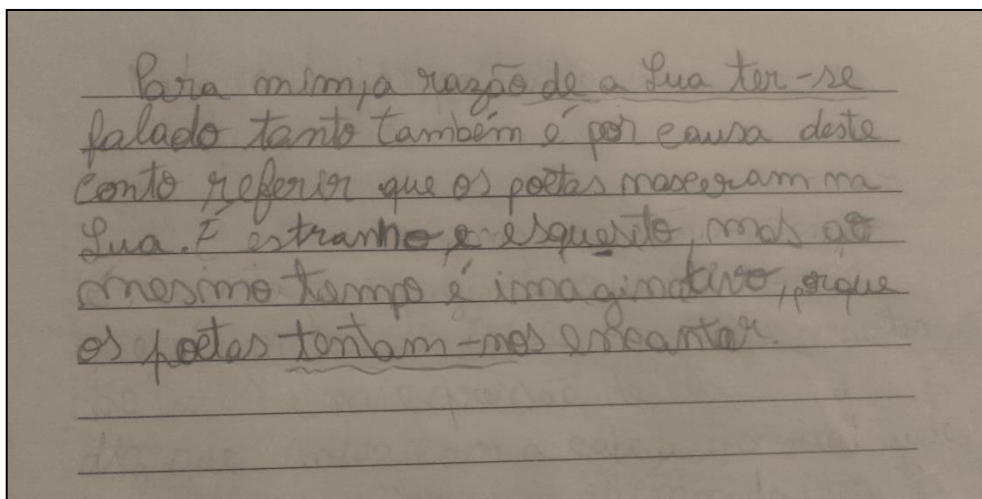 Para mim, a razão de a Lua ter-se
falado tanto também é por causa deste
conto referir que os poetas nasceram na
Lua. É estranho e esquesito, mas ao
mesmo tempo é imaginativo, porque
os poetas tentam-nos encantar.